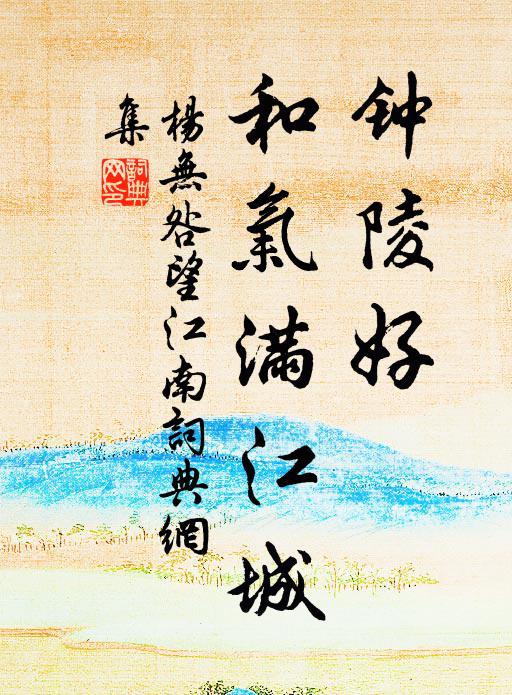 钟陵好
和氣滿江城
楊無咎望江南詞典網
集
詞典
网印